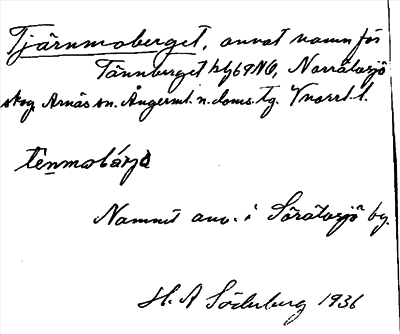 Tjärnmoberget, annat namn för
Tännberget h 469 NO, Norrätansjö
skog Arnäs sn. Ångerml. n. doms. tg. Vnorrl. l.
Namnet anv. i Sörätansjö by.
H. A Söderberg 1936